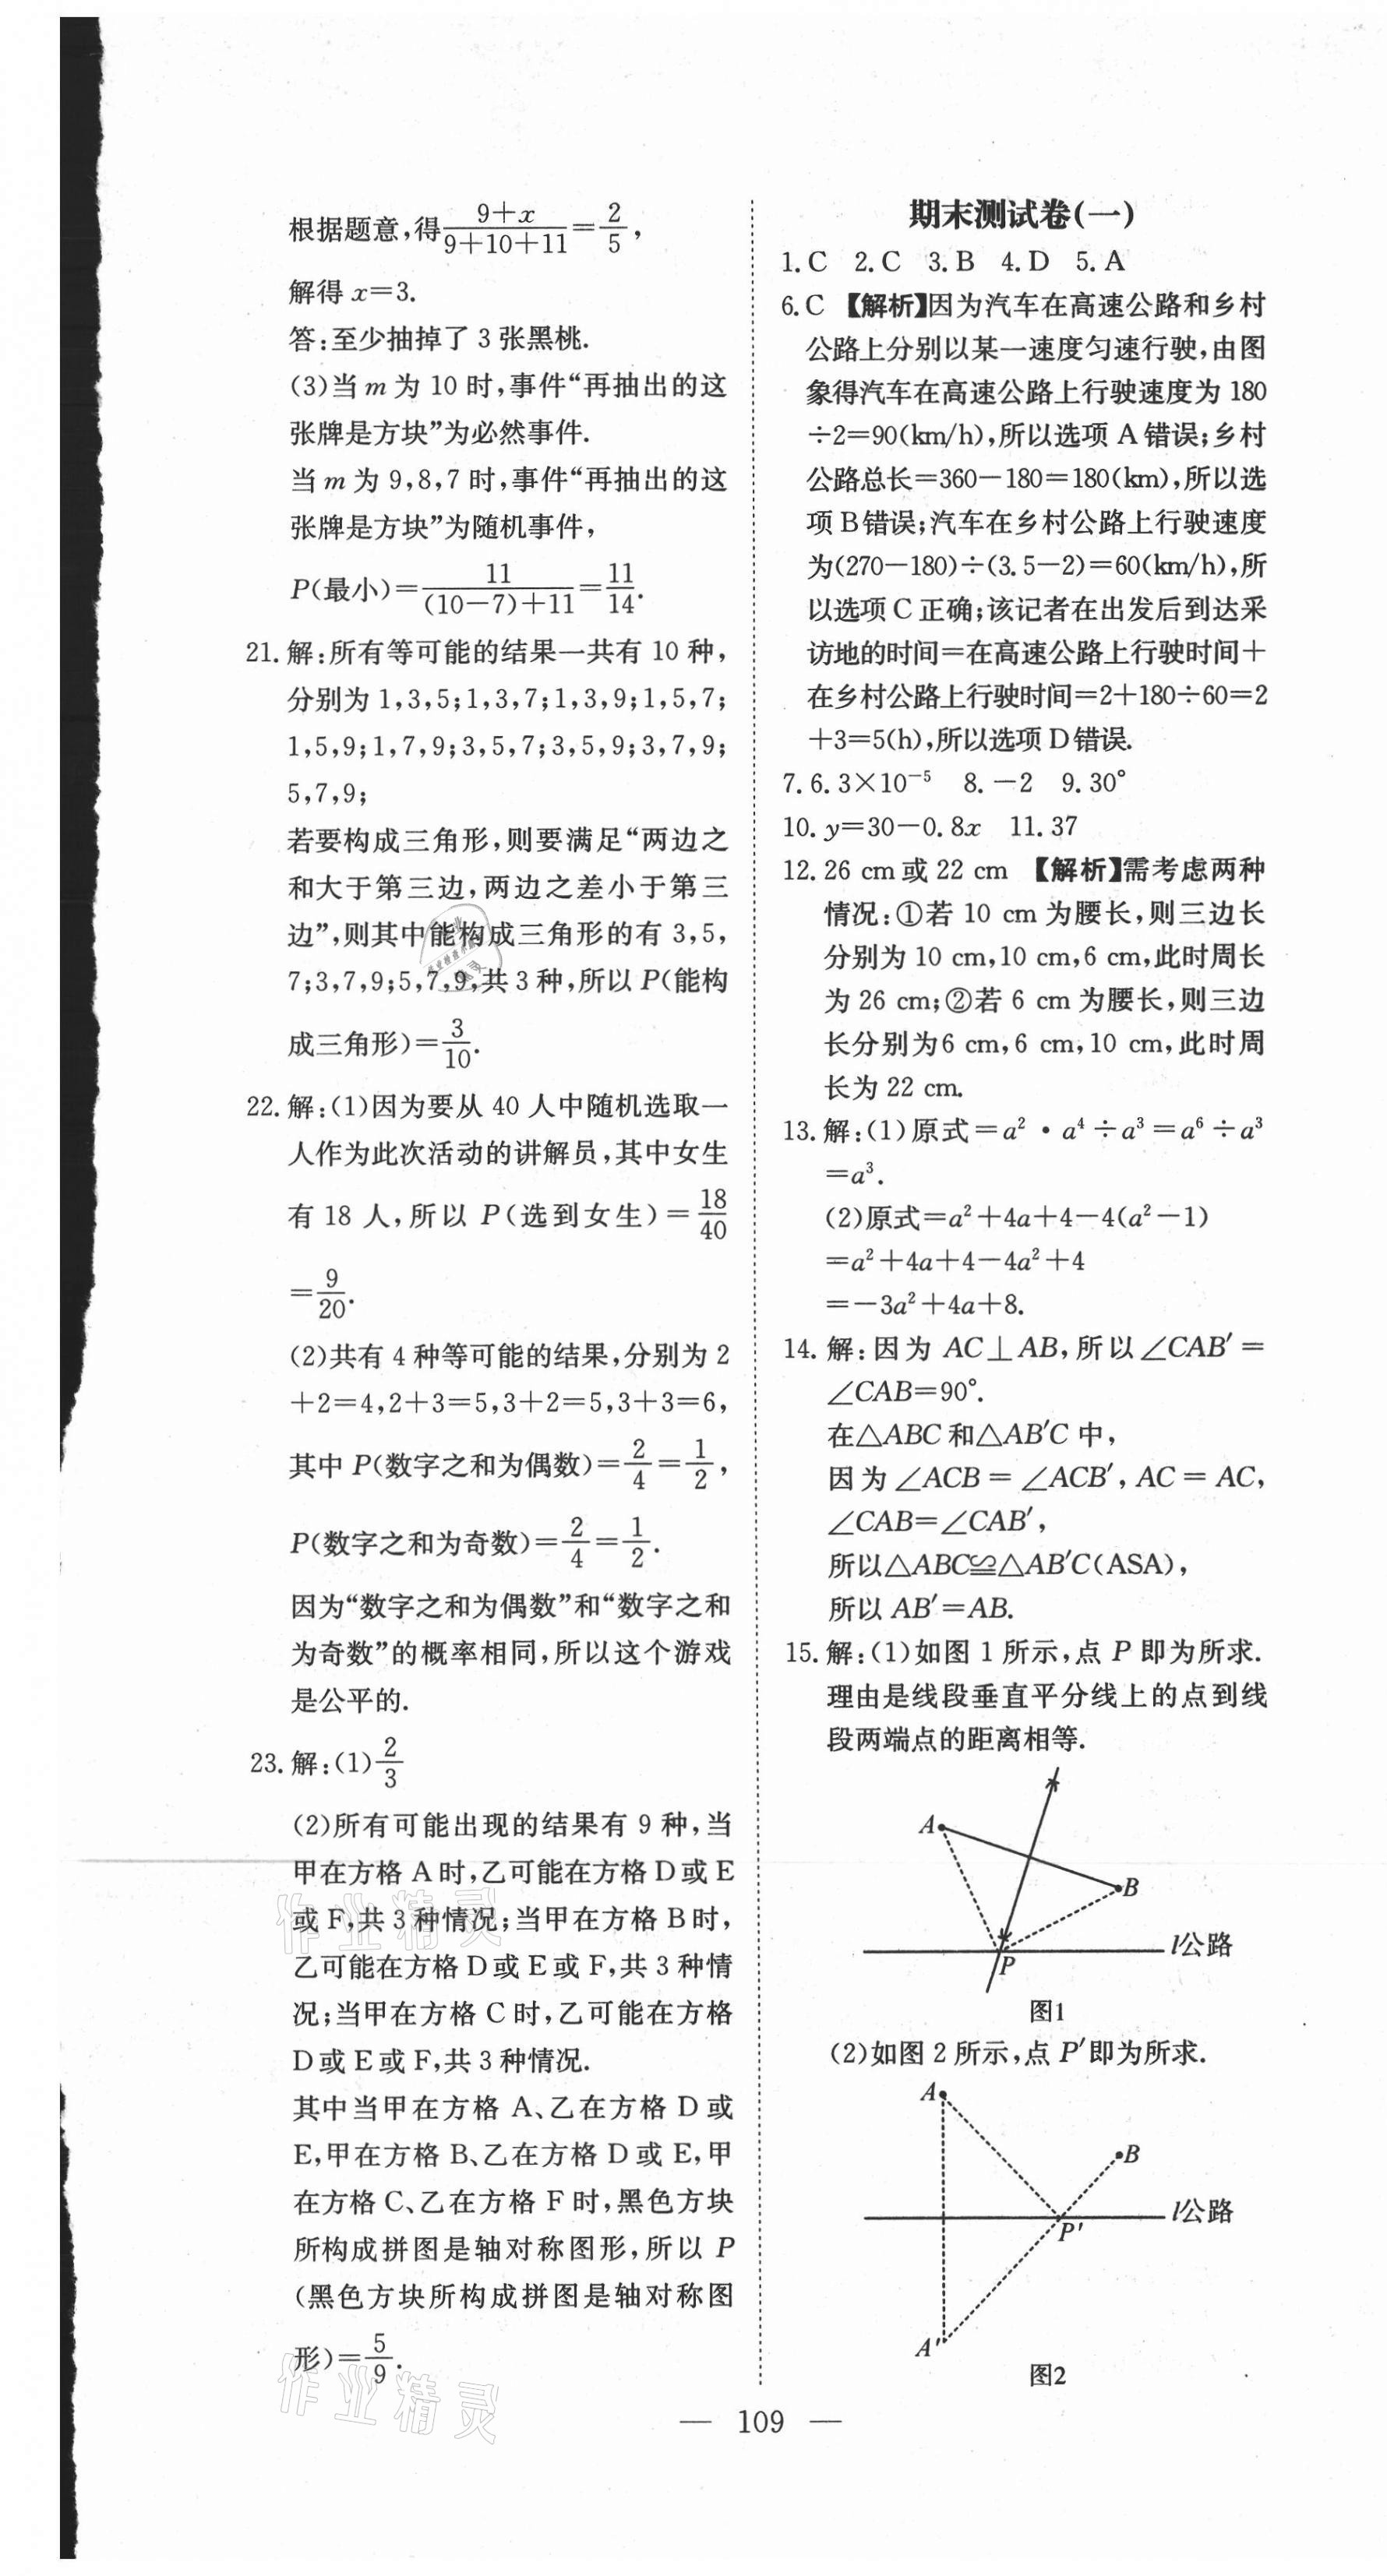 根据题意,得(9+x)/(9+10+11)=2/5,
解得 x=3.
答:至少抽掉了 3 张黑桃.
(3)当 m 为 10 时,事件“再抽出的这
张牌是方块”为必然事件.
当 m 为 9,8,7 时,事件“再抽出的这
张牌是方块”为随机事件,
P(最小)=11/((10-7)+11)=11/14.
21. 解:所有等可能的结果一共有 10 种,
分别为 1,3,5;1,3,7;1,3,9;1,5,7;
1,5,9;1,7,9;3,5,7;3,5,9;3,7,9;
5,7,9;
若要构成三角形,则要满足“两边之
和大于第三边,两边之差小于第三
边”,则其中能构成三角形的有 3,5,
7;3,7,9;5,7,9,共 3 种,所以 P(能构
成三角形)=3/10.
22. 解:(1)因为要从 40 人中随机选取一
人作为此次活动的讲解员,其中女生
有 18 人,所以 P(选到女生)=18/40
=9/20.
(2)共有 4 种等可能的结果,分别为 2
+2=4,2+3=5,3+2=5,3+3=6,
其中 P(数字之和为偶数)=2/4=1/2,
P(数字之和为奇数)=2/4=1/2.
因为“数字之和为偶数”和“数字之和
为奇数”的概率相同,所以这个游戏
是公平的.
23. 解:(1)2/3
(2)所有可能出现的结果有 9 种,当
甲在方格 A 时,乙可能在方格 D 或 E
或 F,共 3 种情况;当甲在方格 B 时,
乙可能在方格 D 或 E 或 F,共 3 种情
况;当甲在方格 C 时,乙可能在方格
D 或 E 或 F,共 3 种情况.
其中当甲在方格 A、乙在方格 D 或
E,甲在方格 B、乙在方格 D 或 E,甲
在方格 C、乙在方格 F 时,黑色方块
所构成拼图是轴对称图形,所以 P
(黑色方块所构成拼图是轴对称图
形)=5/9.
期末测试卷(一)
1. C 2. C 3. B 4. D 5. A
6. C 【解析】因为汽车在高速公路和乡村
公路上分别以某一速度匀速行驶,由图
象得汽车在高速公路上行驶速度为 180
÷2=90(km/h),所以选项 A 错误;乡村
公路总长=360-180=180(km),所以选
项 B 错误;汽车在乡村公路上行驶速度
为(270-180)÷(3.5-2)=60(km/h),所
以选项 C 正确;该记者在出发后到达采
访地的时间=在高速公路上行驶时间+
在乡村公路上行驶时间=2+180÷60=2
+3=5(h),所以选项 D 错误.
7. 6.3×10⁻⁵ 8. -2 9. 30°
10. y=30-0.8x 11. 37
12. 26 cm 或 22 cm 【解析】需考虑两种
情况:①若 10 cm 为腰长,则三边长
分别为 10 cm,10 cm,6 cm,此时周长
为 26 cm;②若 6 cm 为腰长,则三边
长分别为 6 cm,6 cm,10 cm,此时周
长为 22 cm.
13. 解:(1)原式=a²·a⁴÷a³=a⁶÷a³
=a³.
(2)原式=a²+4a+4-4(a²-1)
=a²+4a+4-4a²+4
=-3a²+4a+8.
14. 解:因为 AC⊥AB,所以∠CAB′=
∠CAB=90°.
在△ABC 和△AB′C 中,
因为∠ACB=∠ACB′,AC=AC,
∠CAB=∠CAB′,
所以△ABC≌△AB′C(ASA),
所以 AB′=AB.
15. 解:(1)如图 1 所示,点 P 即为所求.
理由是线段垂直平分线上的点到线
段两端点的距离相等.
A
B
l公路
P
图1
(2)如图 2 所示,点 P′即为所求.
A
B
l公路
P′
A′
图2
— 109 —
作业精灵
作业精灵